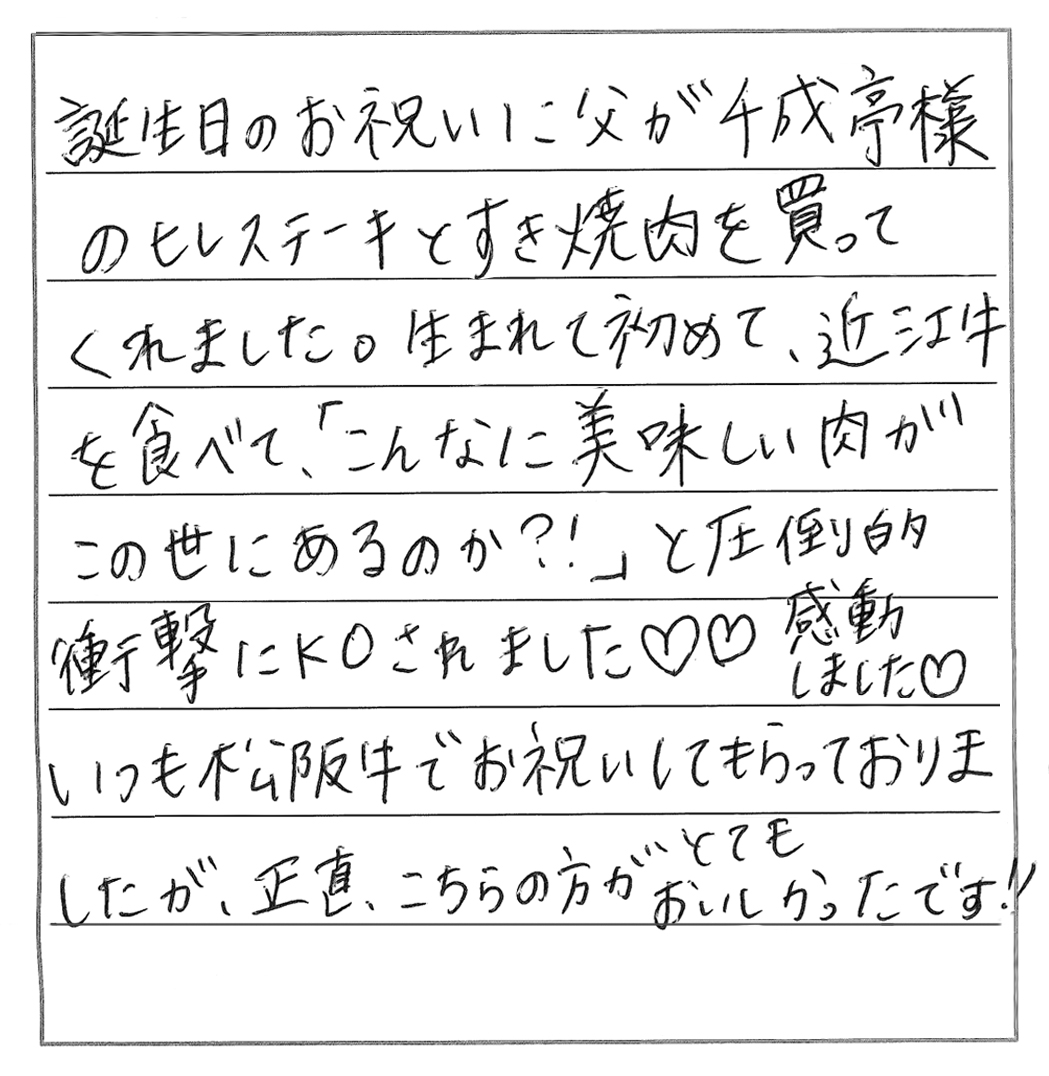 誕生日のお祝いに父が千成亭様
のヒレステーキとすき焼肉を買って
くれました。生まれて初めて、近江牛
を食べて、「こんなに美味しい肉が
この世にあるのか?!」と圧倒的
衝撃にKOされました♡♡ 感動
しました♡
いつも松阪牛でお祝いしてもらっておりま
したが、正直、こちらの方がとても
おいしかったです!!